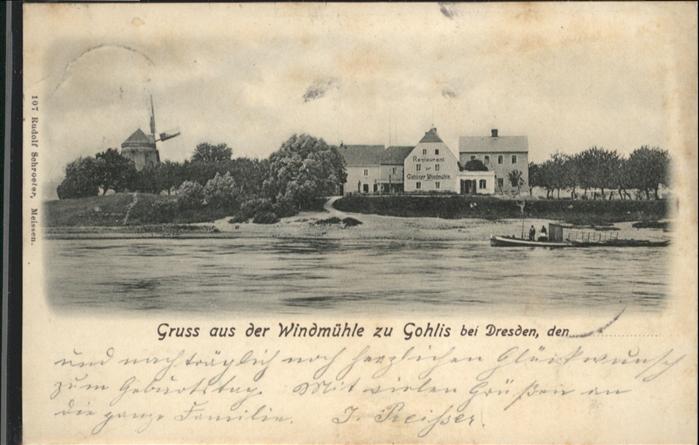 107 Rudolf Schroeter, Meissen.
Restaurant
zur
Gohliser Windmühle.
Gruss aus der Windmühle zu Gohlis bei Dresden, den
und nachträglich noch herzlichen Glückwunsch
zum Geburtstag. Mit vielen Grüßen an
die ganze Familie. J. Preißer.